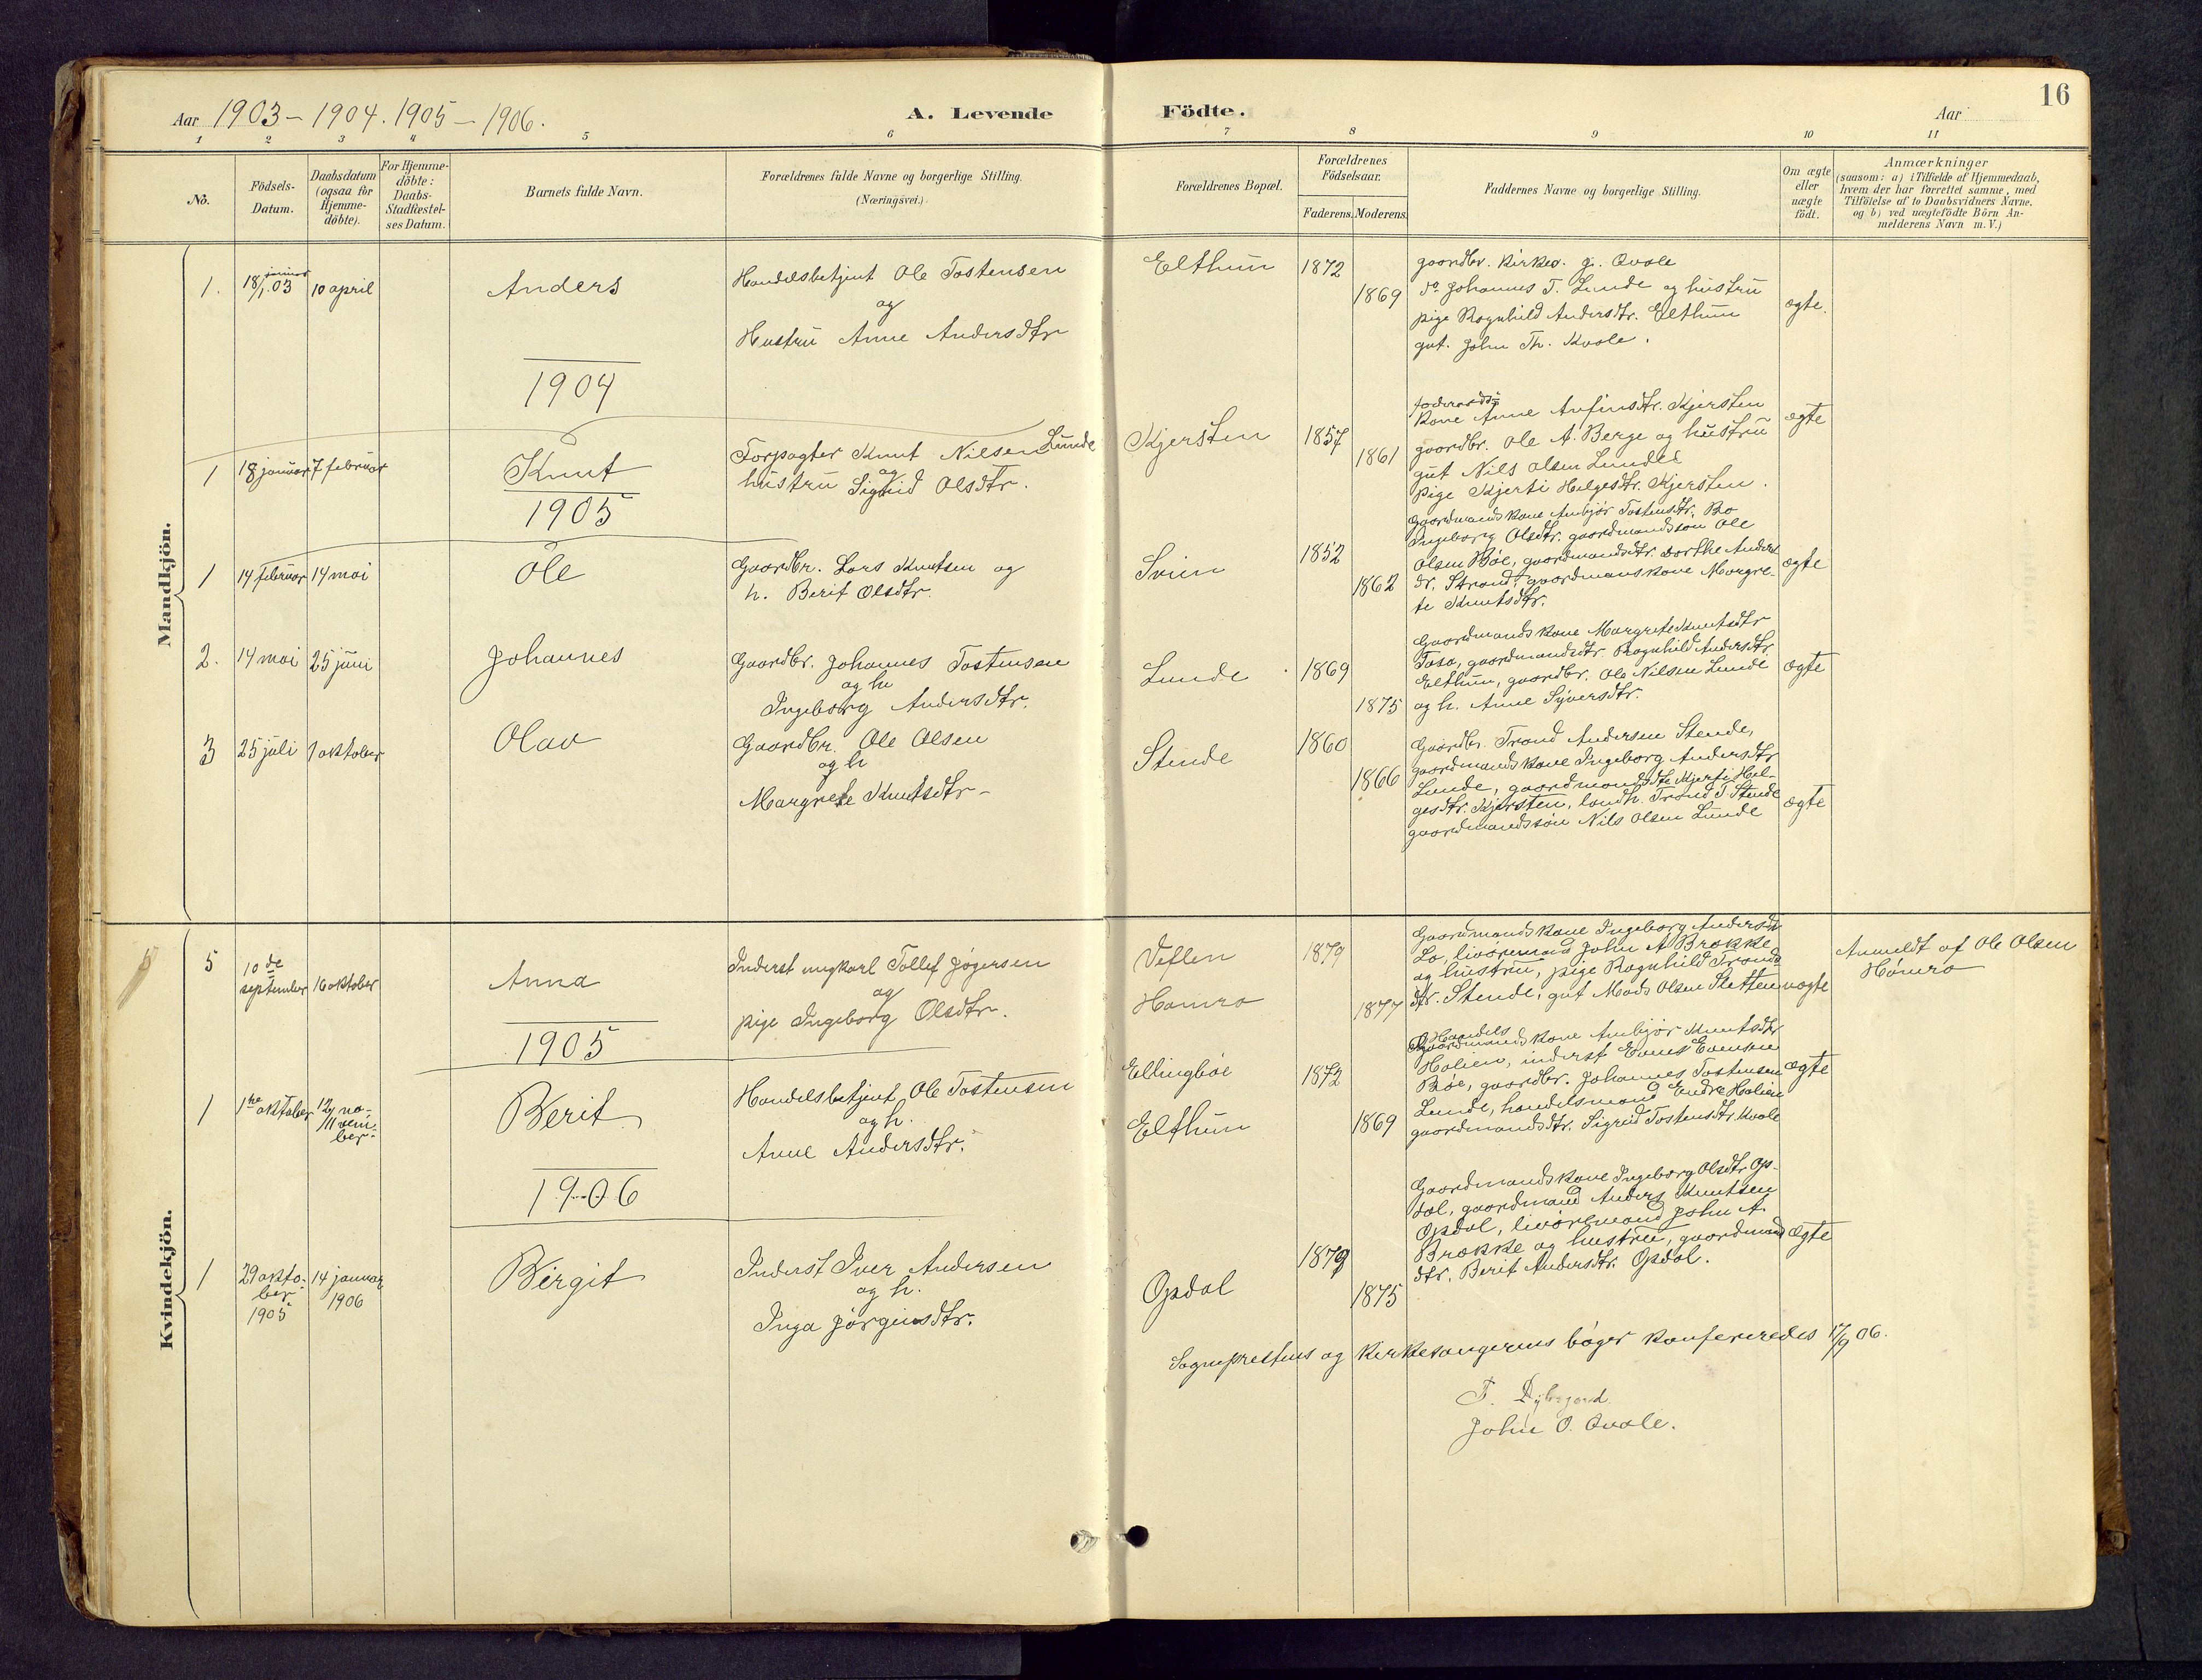 Aar 1903 - 1904. 1905 - 1906.
A. Levende
Födte.
Aar
16
1 2 3 4 5 6 7 8 9 10 11
No.
Födsels-
Datum.
Daabsdatum
(ogsaa for
Hjemme-
döbte).
For Hjemme-
döbte:
Daabs-
Stadfæstel-
ses Datum.
Barnets fulde Navn.
Forældrenes fulde Navne og borgerlige Stilling.
(Næringsvei.)
Forældrenes Bopæl.
Forældrenes
Födselsaar.
Faderens. Moderens.
Faddernes Navne og borgerlige Stilling.
Om ægte
eller
uægte
födt.
Anmærkninger
(saasom: a) i Tilfælde af Hjemmedaab,
hvem der har forrettet samme, med
Tilföielse af to Daabsvidners Navne,
og b) ved uægtefödte Börn An-
melderens Navn m. V.)
Mandkjön.
1.
januar
18/1.03
10 april
Anders
Handelsbetjent Ole Tostensen
og
Hustru Anne Andersdtr
Elthun
1872
1869
gaardbr. Kirkes. g. Qvale
do Johannes T. Lunde og hustru
pige Ragnhild Andersdtr. Elthun
gut. John Th. Kvale.
ægte.
1904
1
18 januar
7 februar
Knut
Forpagter Knut Nilsen Lunde
og
hustru Sigrid Olsdtr.
Kjersten
1857
1861
Kone Anne Anfinsdtr. Kjersten
gaardbr. Ole A. Berge og hustru
gut Nils Olsen Lunde
pige Kjerti Helgesdtr. Kjersten.
ægte
1905
1
14 februar
14 mai
Ole
Gaardbr. Lars Knutsen og
h. Berit Olsdtr.
Svien
1852
1862
Gaardmandskone Ambjör Tostensdtr. Bo
Ingeborg Olsdtr. gaardmandssön Ole
Olsen Böe, gaardmandsdtr. Dorthe Anders
dr. Strand, gaardmanskone Margre-
te Knutsdtr.
ægte
2.
14 mai
25 juni
Johannes
Gaardbr. Johannes Tostensen
og h
Ingeborg Andersdtr.
Lunde
1869
1875
Gaardmandskone Margrete Knutsdtr
Fosa, gaardmandsdtr. Ragnhild Andersdtr.
Elthun, gaardbr. Ole Nilsen Lunde
og h. Anne Syversdtr.
ægte
3
25 juli
1 oktober
Olav
Gaardbr. Ole Olsen
og h
Margrete Knutsdtr-
Stende
1860
1866
Gaardbr. Trond Andersen Stende,
gaardmandskone Ingeborg Andersdtr
Lunde, gaardmandsdtr Kjerti Hel-
gesdtr. Kjersten, landh. Trond T. Stende
gaardmandssön Nils Olsen Lunde
ægte
Kvindekjön.
5
10 de
september
16 oktober
Anna
Inderst ungkarl Tollef Jögersen
og
pige Ingeborg Olsdtr.
Veflen
Hamro
1879
1877
Gaardmandskone Ingeborg Andersdtr
Lo, livöremand John A Brække
og hustru, pige Ragnhild Tronds
dtr. Stende, gut Mads Olsen Sletten
uægte
Anmeldt af Ole Olsen
Hömro
1905
1
1ne oktober
12/11 no-
vem-
ber
Berit
Handelsbetjent Ole Tostensen
og h.
Anne Andersdtr.
Ellingböe
Elthun
1872
1869
Handels
Gaardmandskone Ambjör Knutsdtr
Holien, inderst Evens Evensen
Böe, gaardbr. Johannes Tostensen
Lunde, handelsmand Endre Holien
gaardmandsdtr. Sigrid Tostensdtr. Kvale
ægte
1906
1
29 okto-
ber
1905
14 januar
1906
Birgit
Inderst Iver Andersen
og h.
Inga Jörgensdtr.
Opdal
1879
1875
Gaardmandskone Ingeborg Olsdtr Op-
dal, gaardmand Anders Knutsen
Opdal, livöremand John A.
Brække og hustru, gaardmand
dtr. Berit Andersdtr. Opdal.
ægte
Sogneprestens og Kirkesangerens böger konfereredes 17/9 06.
John O. Qvale.